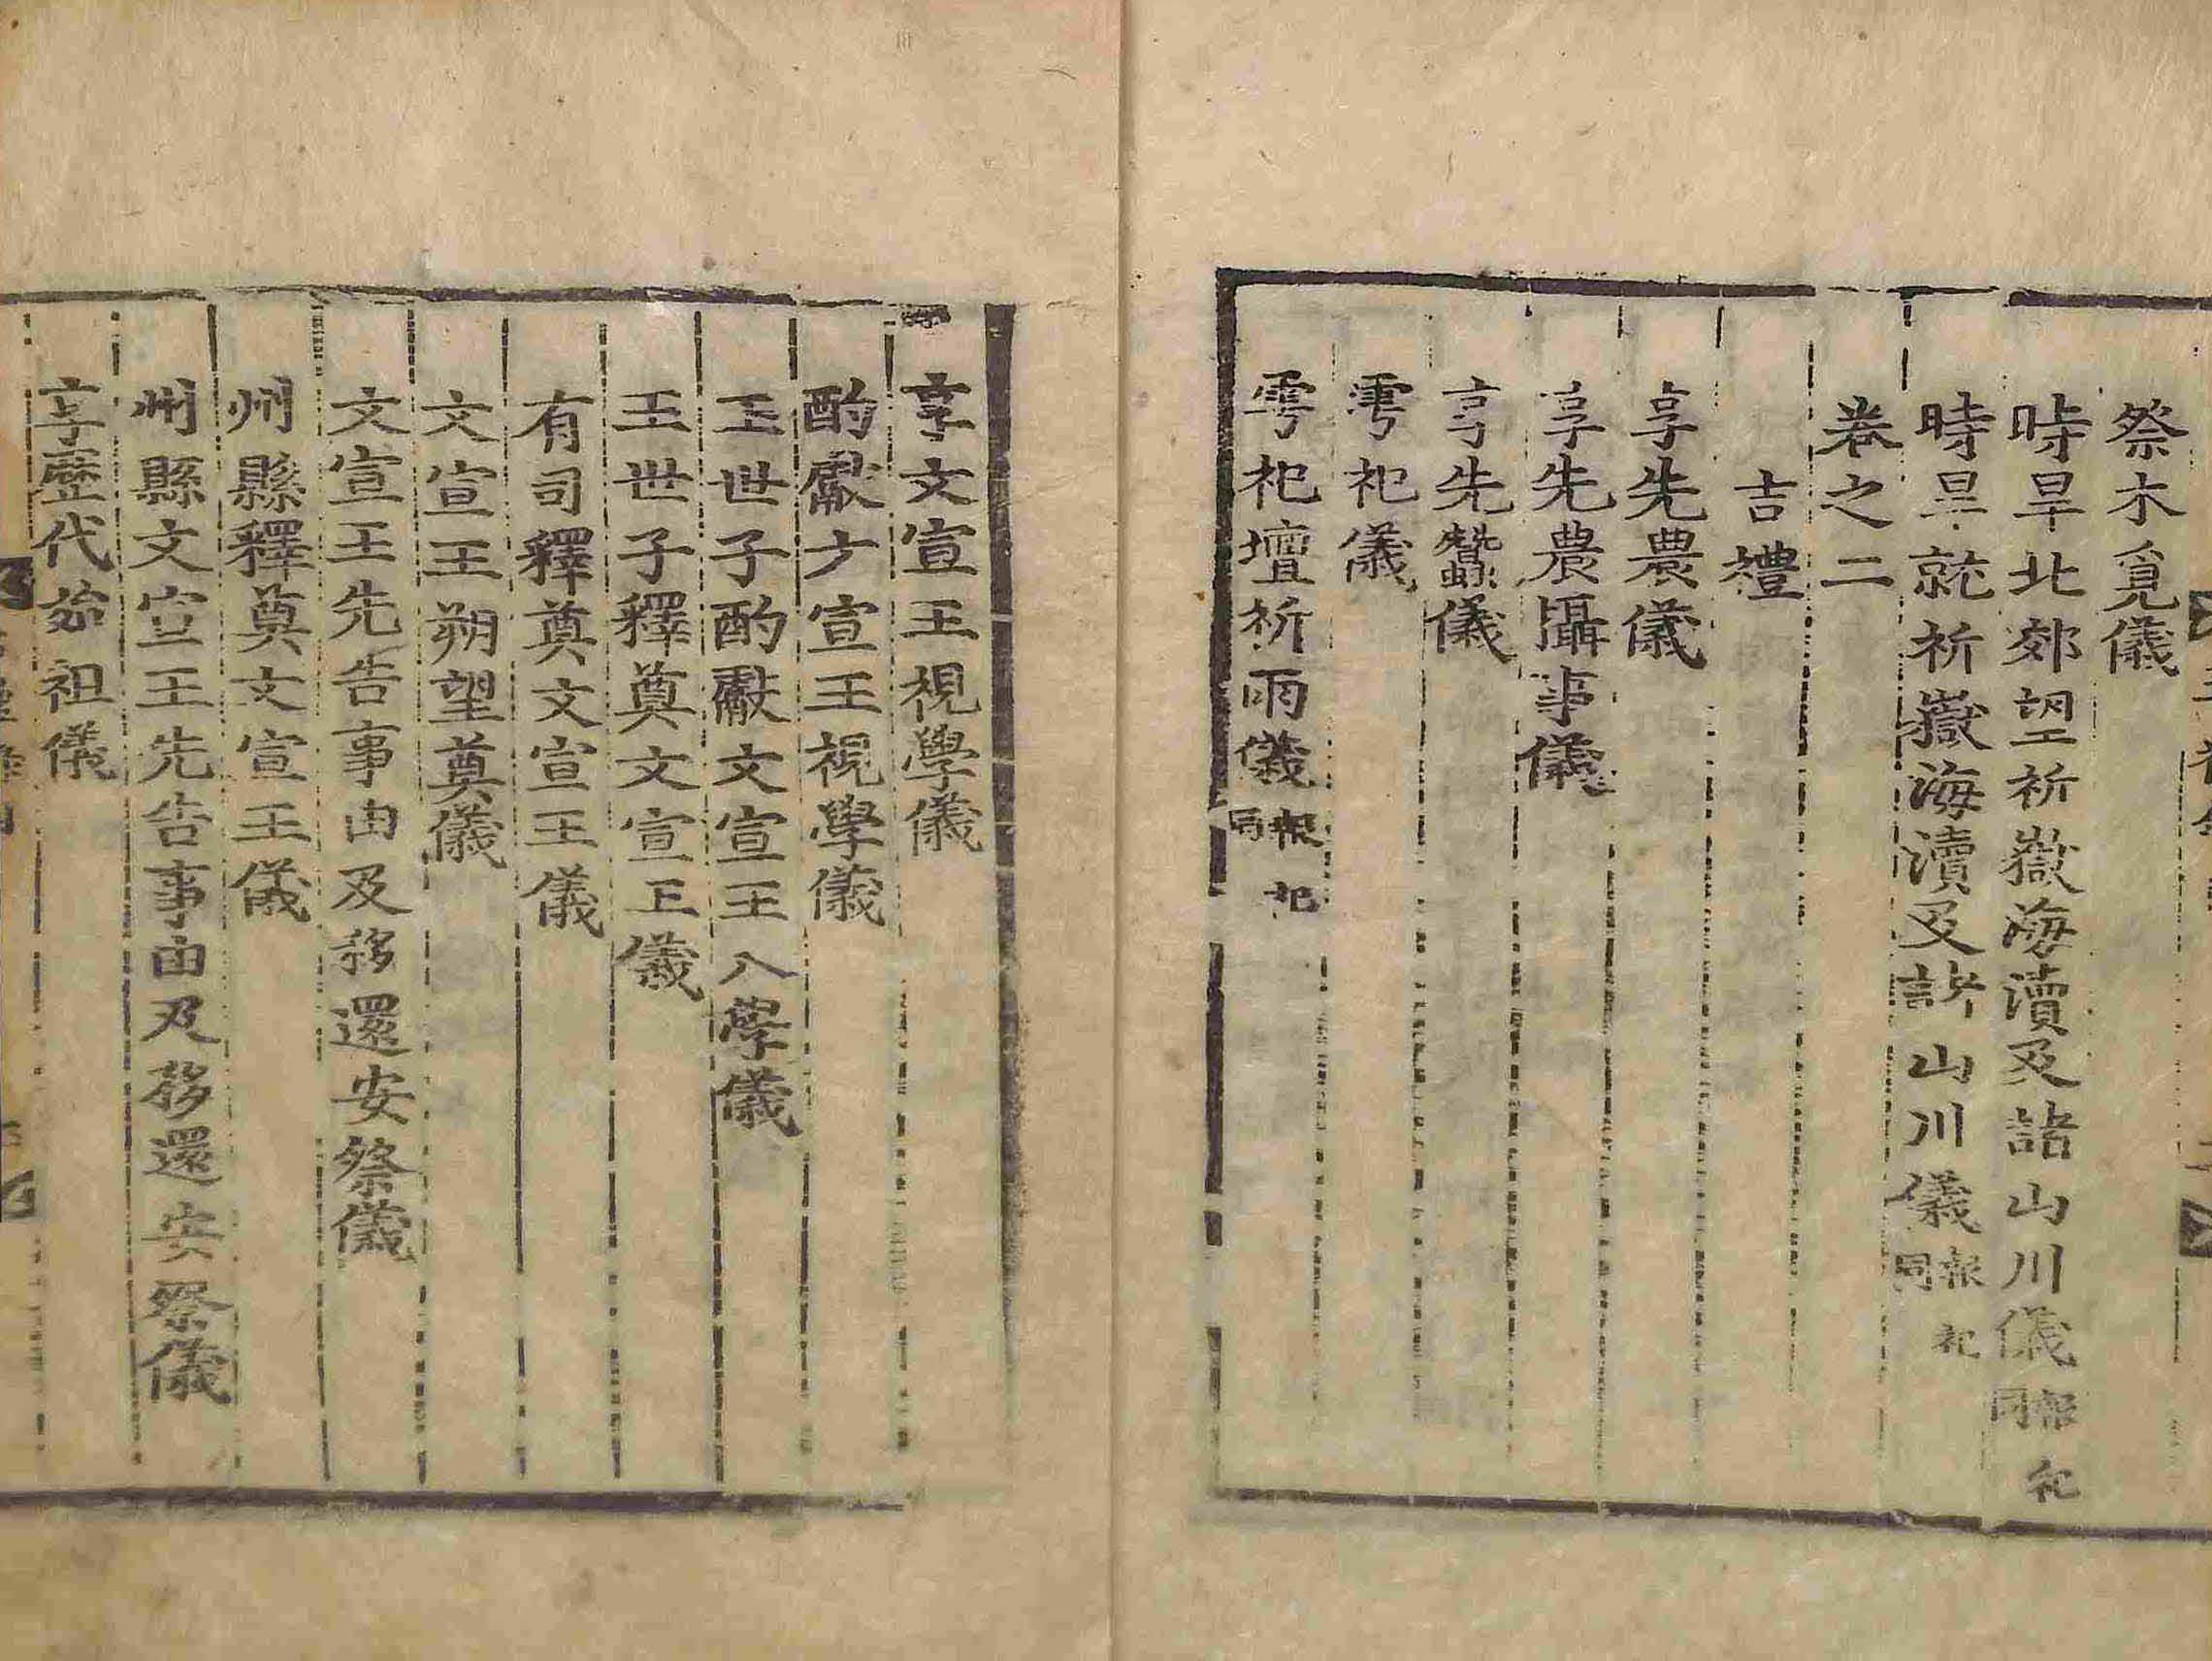 祭木覓儀
時旱北郊望祈嶽海瀆及諸山川儀報祀同
時旱就祈嶽海瀆及諸山川儀報祀同
卷之二
吉禮
享先農儀
享先農攝事儀
享先蠶儀
雩祀儀
雩祀壇祈雨儀報祀同
享文宣王視學儀
酌獻文宣王視學儀
王世子酌獻文宣王入學儀
王世子釋奠文宣王儀
有司釋奠文宣王儀
文宣王朔望奠儀
文宣王先告事由及移還安祭儀
州縣釋奠文宣王儀
州縣文宣王先告事由及移還安祭儀
享歷代始祖儀